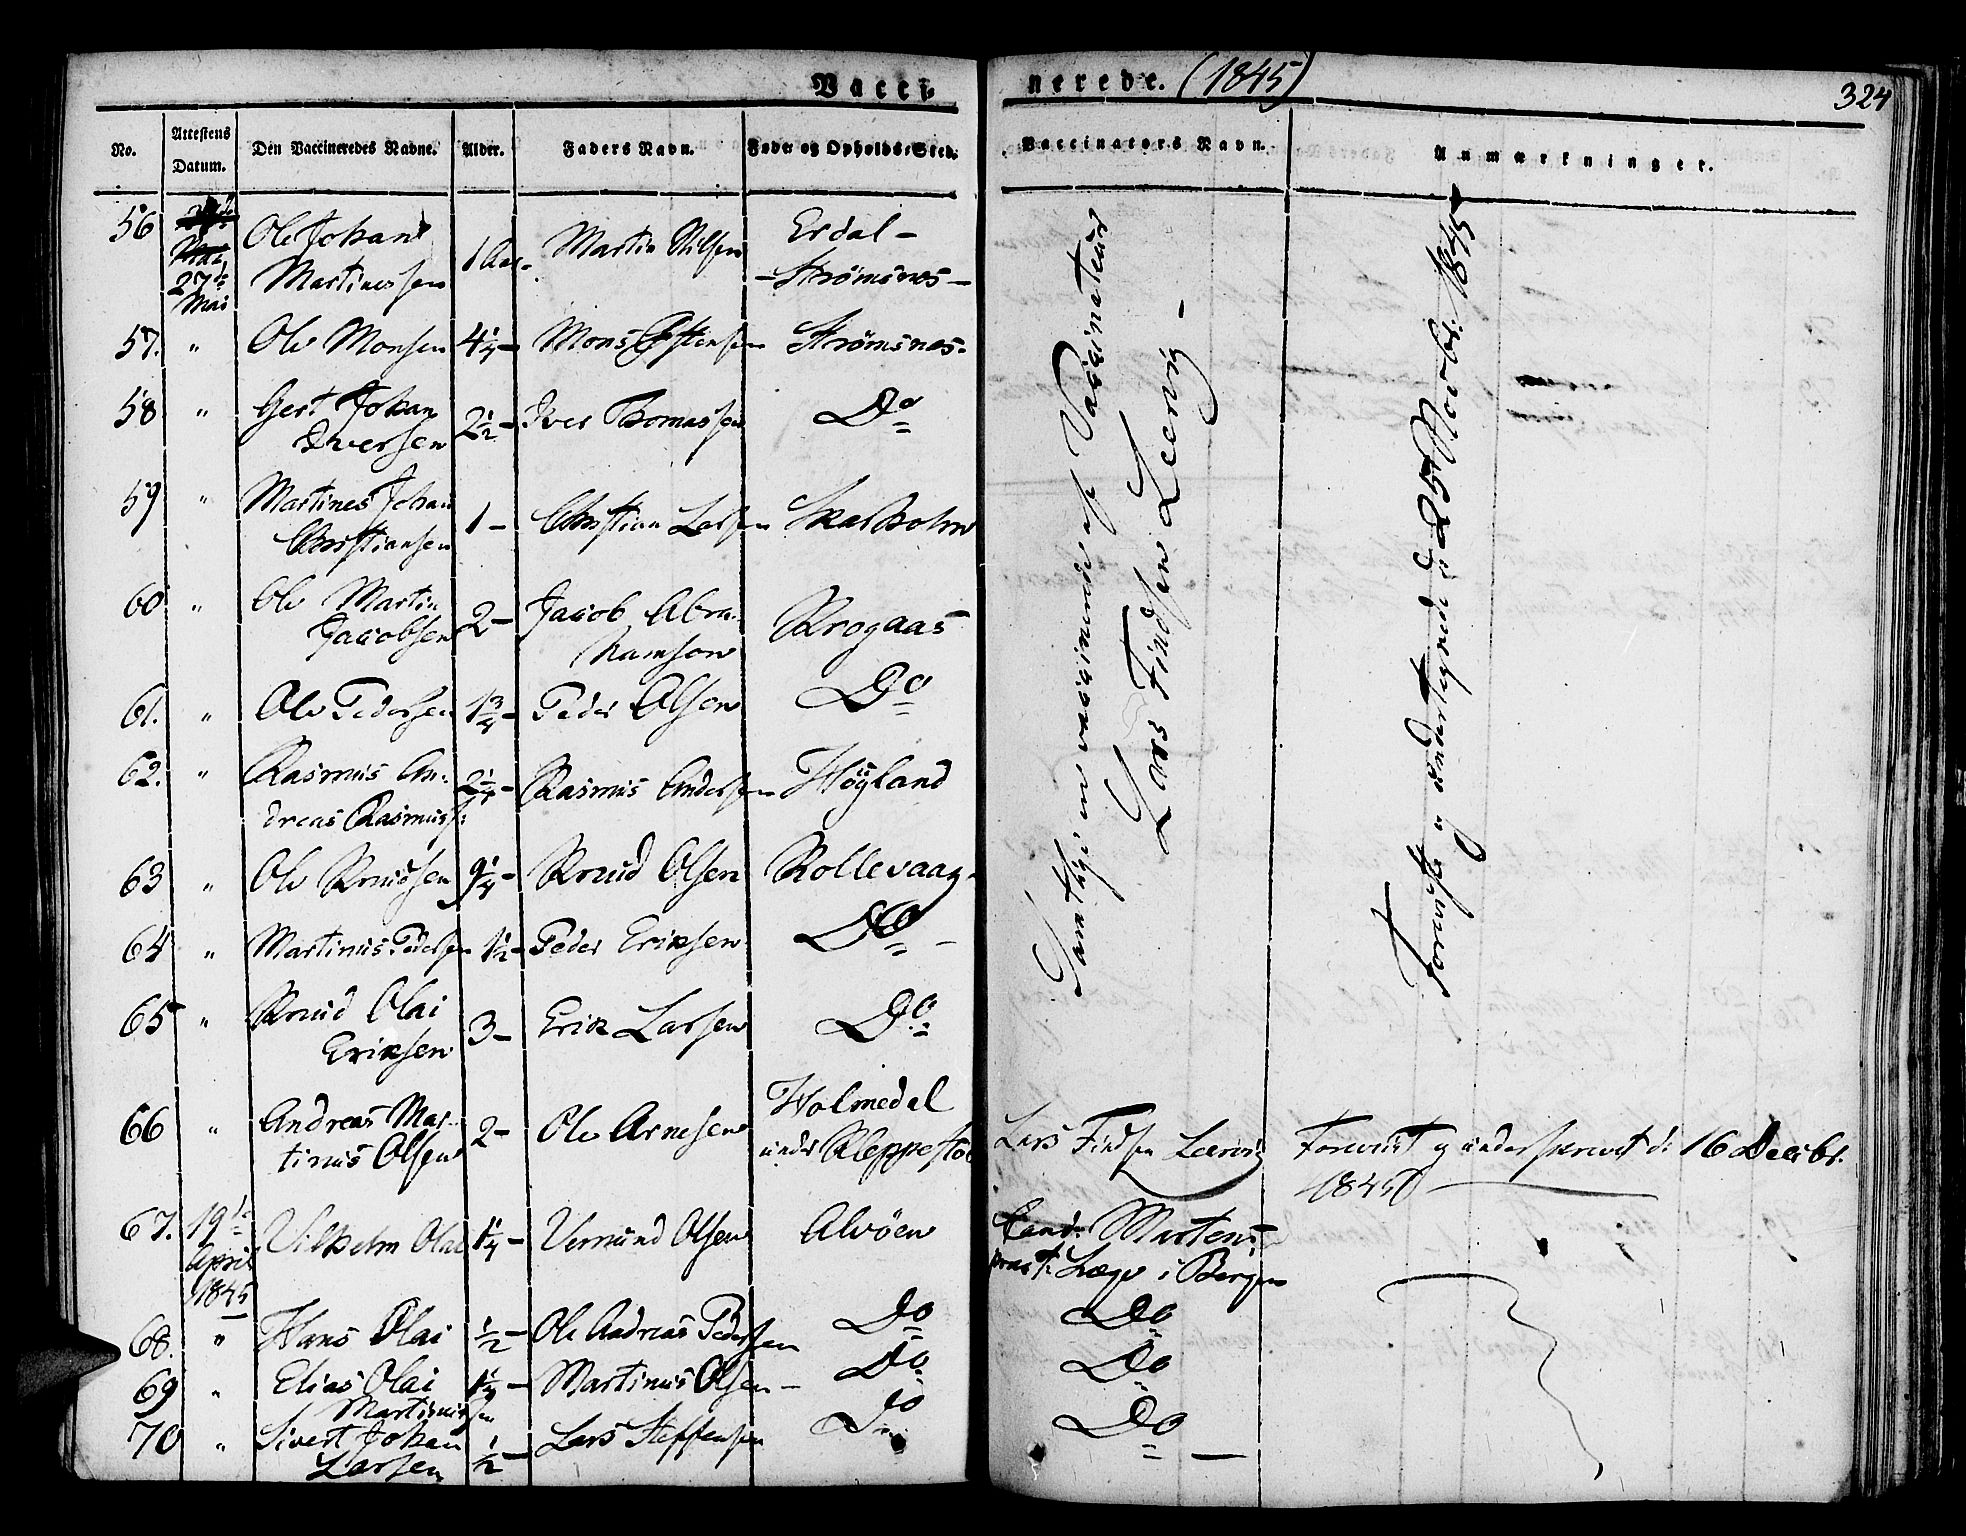 Vacci-
nerede. (1845)
324
No.
Attestens Datum.
Den Vaccineredes Navne.
Alder.
Faders Navn.
Føde- og Opholds-Sted.
Vaccinators Navn.
Anmærkninger.
56 27de Mai Ole Johan Martinussen 1 Aar- Martin Nilsen Erdal - Strømsnes -
57. " Ole Monsen 4 1/4 - Mons Østensen Strømsnes.
58 " Gert Johan Iversen 2 1/2 - Iver Thomassen Do
59 " Martines Johan Christiansen 1 - Christian Larsen Skarholm
60 " Ole Martin Jacobsen 2 - Jacob Abrahamson Krogaas
61. " Ole Pedersen 1 3/4 - Peder Olsen Do
62. " Rasmus Andreas Rasmuss: 2 1/4 - Rasmus Andersen Höyland
63 " Ole Knudsen 9 1/4 - Knud Olsen Kollevaag.
64 " Martinus Pedersen 1 1/2 - Peder Eriksen Do -
65 " Knud Olai Eriksen 3 - Erik Larsen Do
66 " Andreas Martinus Olsen 2 - Ole Arnesen Holmedal under Kleppestø
67. 19de April 1845 Vilhelm Olai 1 1/4 - Vemund Olsen Alvöen
68. " Hans Olai 1/2 - Ole Andreas Pedersen Do
69 " Elias Olai Martinussen 1 1/4 - Martinus Olsen - Do
70 " Sivert Johan Larsen 1/2 - Lars Steffensen Do
Samtlige ere vaccinerede af Vaccinateur
Lars Findsen Leervig -
Foreviiste og undertegnede d 25 Novbr: 1845
Lars Findsen Leervig
Foreviist og underskrevet d: 16 Decbr.
1845
Cand. Martens
pract: Læge i Bergen
Do
Do
Do -